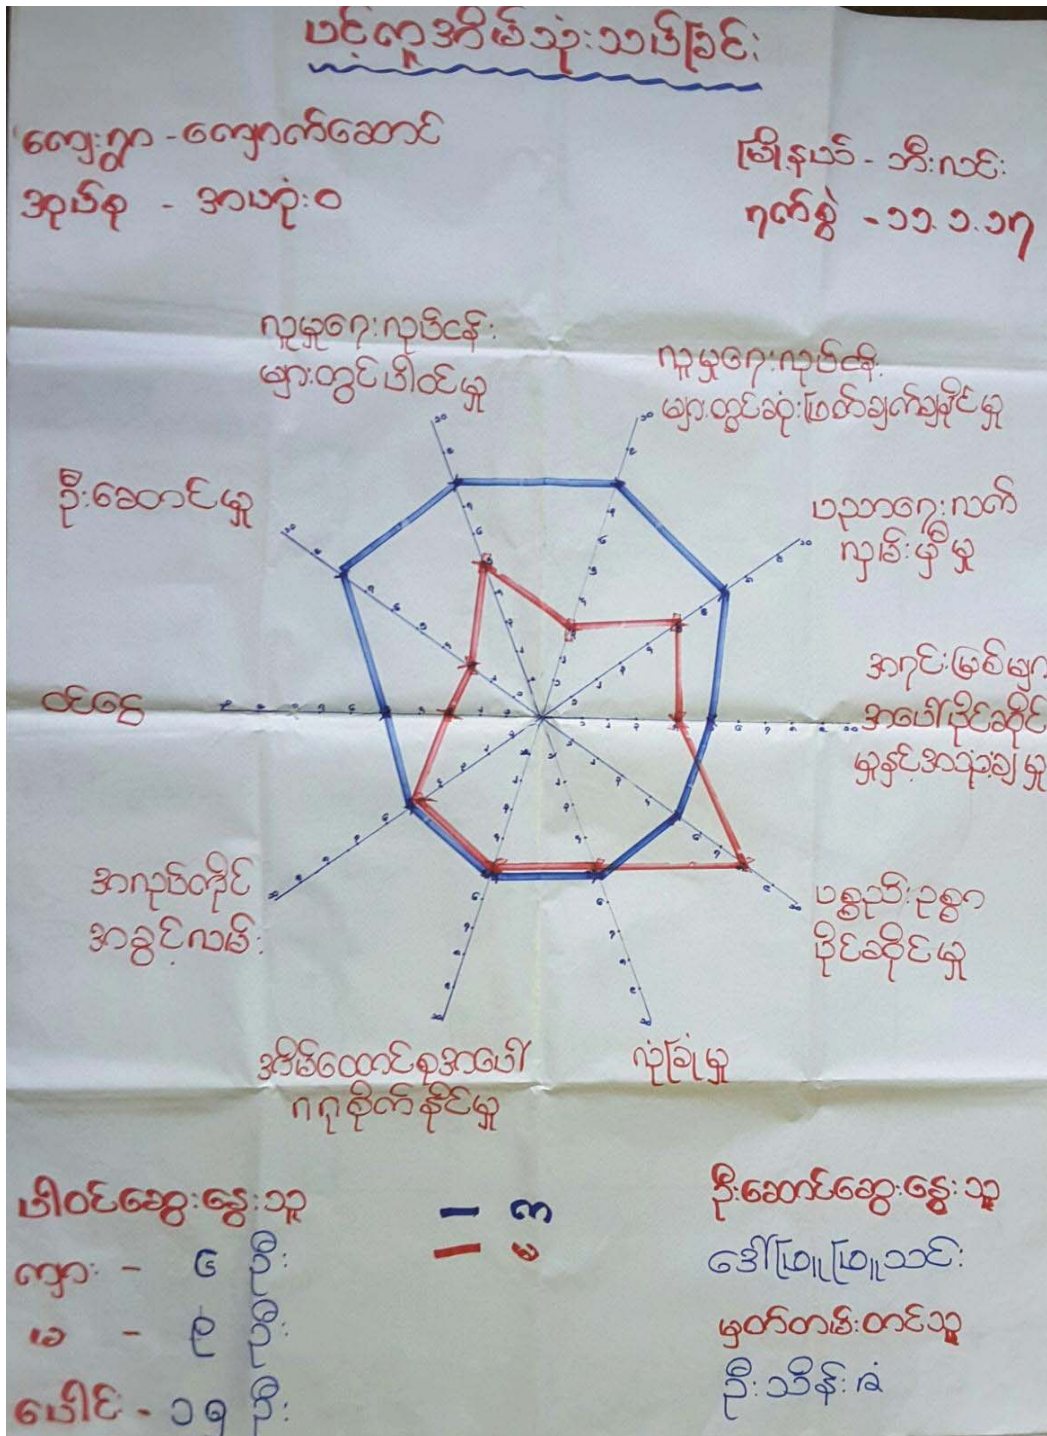 ပင့်ကူအိမ်သုံးသပ်ခြင်း
ကျေးရွာ - ကျောက်ဆောင်
အုပ်စု - အာယုံးဝ
မြို့နယ် - ဘီးလင်း
ရက်စွဲ - ၁၁.၁.၁၇
လူမှုရေးလုပ်ငန်း
များတွင်ပါဝင်မှု
လူမှုရေးလုပ်ငန်း
များတွင်ဆုံးဖြတ်ချက်ချနိုင်မှု
ဦးဆောင်မှု
ပညာရေးလက်
လှမ်းမှီမှု
အရင်းမြစ်များ
အပေါ်ပိုင်ဆိုင်
မှုနှင့်အသုံးချမှု
ဝင်ငွေ
အလုပ်ကိုင်
အခွင့်လမ်း
ပစ္စည်းဥစ္စာ
ပိုင်ဆိုင်မှု
အိမ်ထောင်စုအပေါ်
ဂရုစိုက်နိုင်မှု
လုံခြုံမှု
ပါဝင်ဆွေးနွေးသူ
ကျား - ၆ ဦး
မ - ၉ ဦး
ပေါင်း - ၁၅ ဦး
– ကျ
– မ
ဦးဆောင်ဆွေးနွေးသူ
ဒေါ်ဖြူဖြူသင်း
မှတ်တမ်းတင်သူ
ဦးသိန်းခဲ